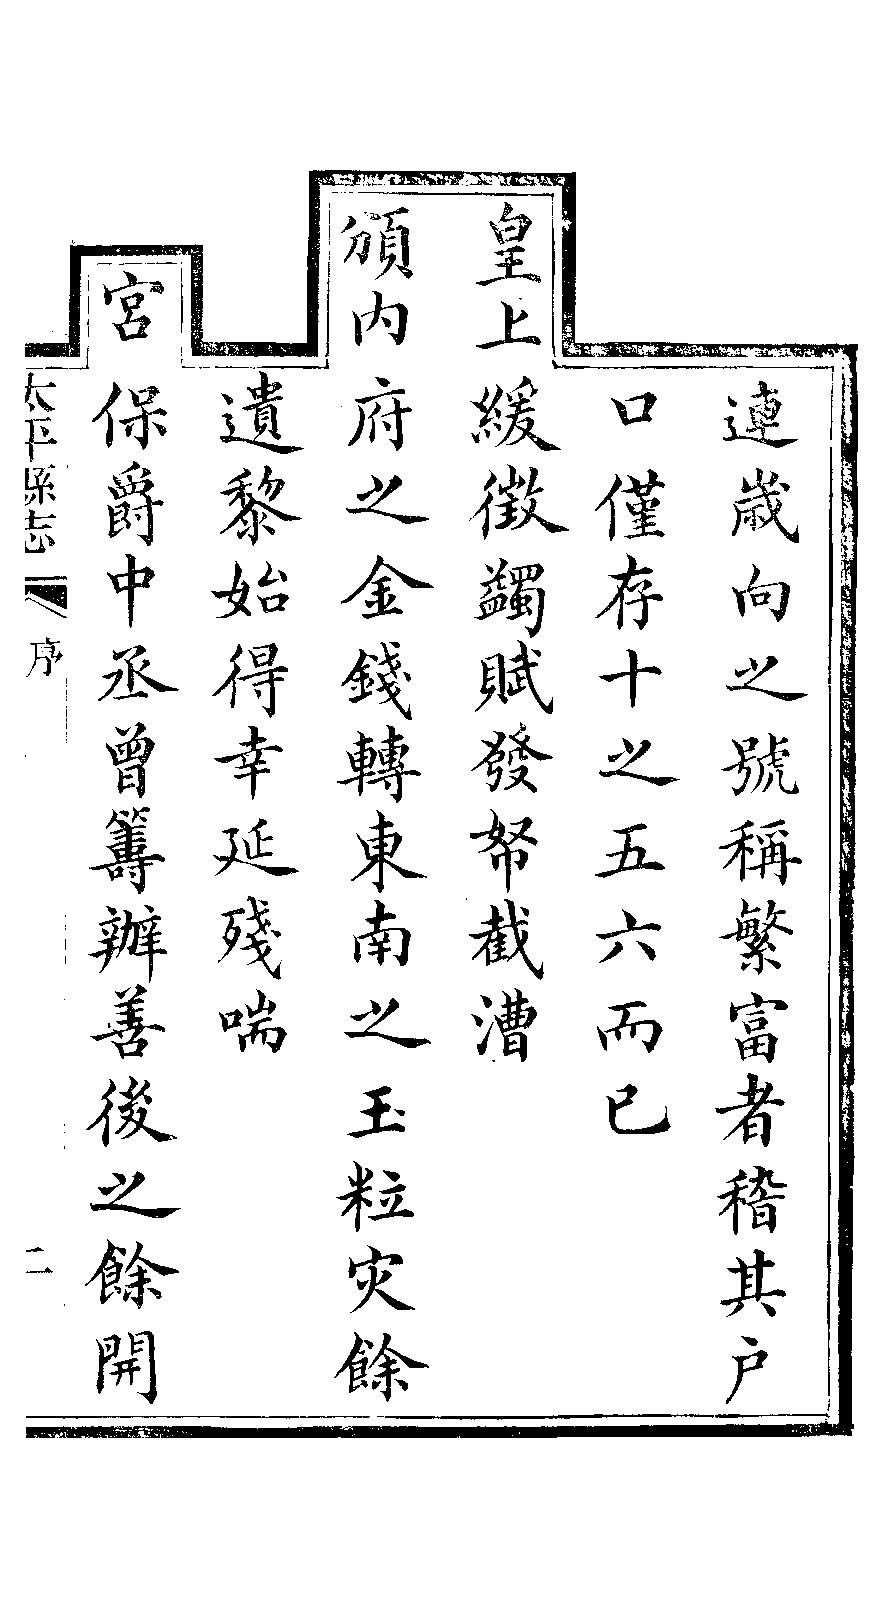 連歲向之號稱繁富者稽其户
口僅存十之五六而已
皇上緩徵蠲賦發帑截漕
頒内府之金錢轉東南之玉粒灾餘
遺黎始得幸延殘喘
宮保爵中丞曾籌辦善後之餘開
太平縣志
序
二